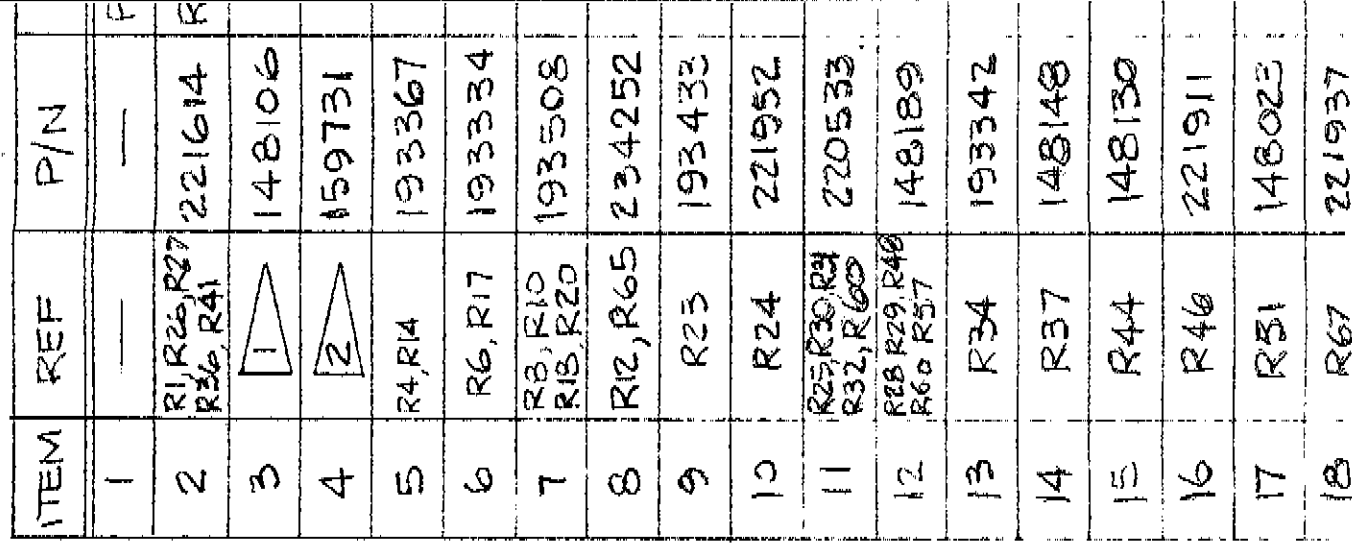 ITEM REF P/N
1 — — F
2 R1, R26, R27 221614 R
R36, R41
3 1 148106
4 2 159731
5 R4, R14 193367
6 R6, R17 193334
7 R8, R10 193508
R18, R20
8 R12, R65 234252
9 R23 193433
10 R24 221952
11 R25, R30, R31 220533
R32, R60
12 R28 R29, R48 148189
R60 R57
13 R34 193342
14 R37 148148
15 R44 148130
16 R46 221911
17 R51 148023
18 R67 221937